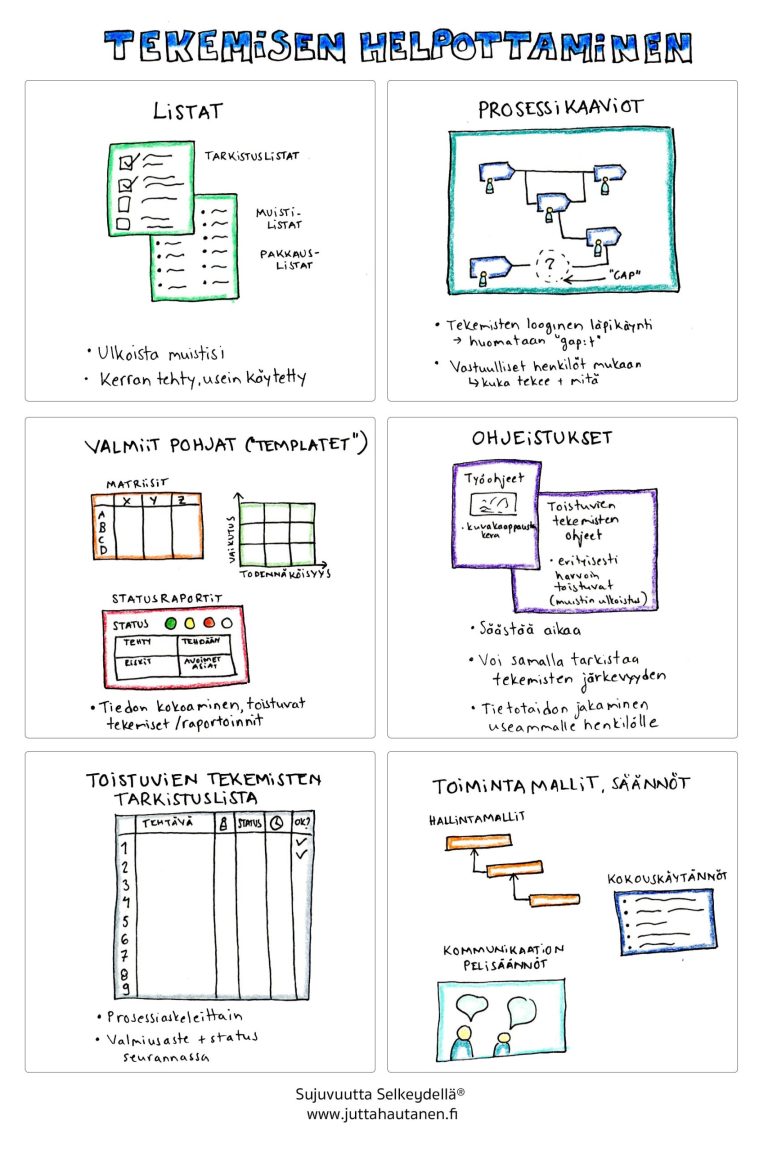 TEKEMISEN HELPOTTAMINEN
LISTAT
TARKISTUSLISTAT
MUISTI-
LISTAT
PAKKAUS-
LISTAT
• Ulkoista muistisi
• Kerran tehty, usein käytetty
PROSESSIKAAVIOT
?
"GAP"
• Tekemisten looginen läpikäynti
→ huomataan "gap:t"
• Vastuulliset henkilöt mukaan
↳ kuka tekee + mitä
VALMIIT POHJAT ("TEMPLATET")
MATRIISIT
X Y Z
A
B
C
D
VAIKUTUS
TODENNÄKÖISYYS
STATUSRAPORTIT
STATUS
TEHTY TEHDÄÄN
RISKIT AVOIMET
ASIAT
• Tiedon kokoaminen, toistuvat
tekemiset / raportoinnit
OHJEISTUKSET
Työohjeet
• kuvakaappausten
kera
Toistuvien
tekemisten
ohjeet
• erityisesti
harvoin
toistuvat
(muistin ulkoistus)
• Säästää aikaa
• Voi samalla tarkistaa
tekemisten järkevyyden
• Tietotaidon jakaminen
useammalle henkilölle
TOISTUVIEN TEKEMISTEN
TARKISTUSLISTA
TEHTÄVÄ STATUS OK?
1
2
3
4
5
6
7
8
9
• Prosessiaskeleittain
• Valmiusaste + status
seurannassa
TOIMINTAMALLIT, SÄÄNNÖT
HALLINTAMALLIT
KOKOUSKÄYTÄNNÖT
KOMMUNIKAATION
PELISÄÄNNÖT
Sujuvuutta Selkeydellä®
www.juttahautanen.fi